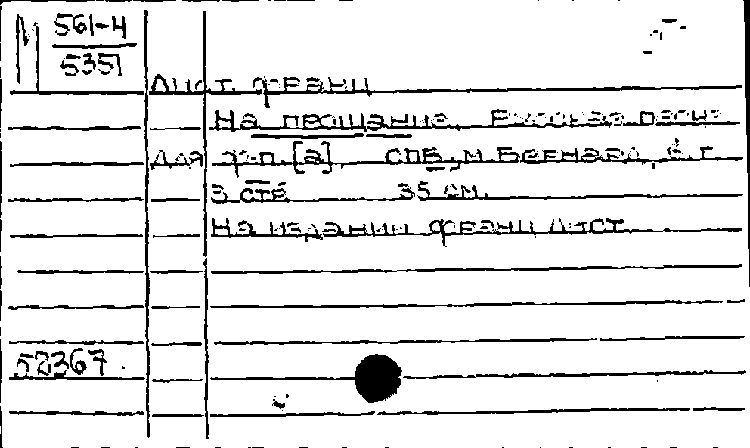 М 561-4
5351
Лист, Франц
На прощание. Русская песня
для ф-п. [a]. СПБ, М. Бернард, б.г.
3 стр. 35 см.
На издании Франц Лист
52367